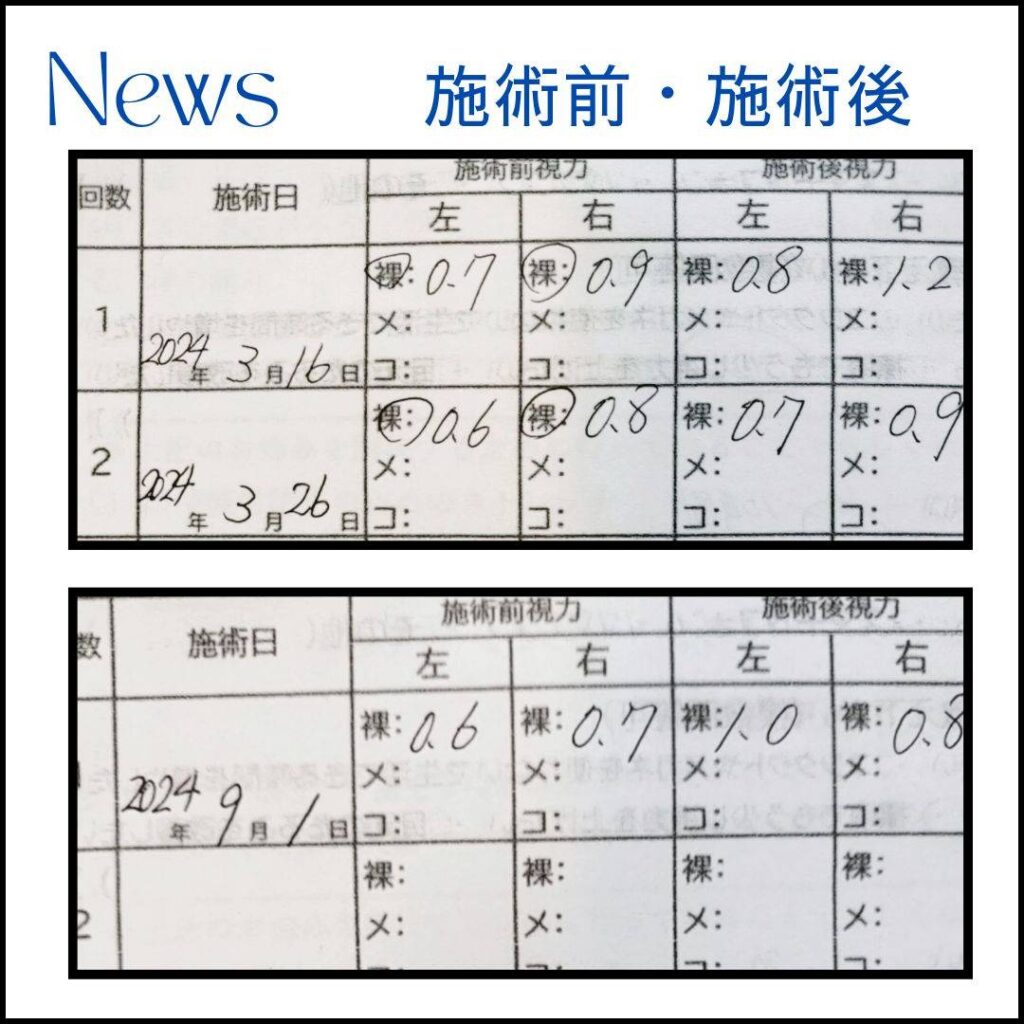 News 施術前・施術後
施術前視力 施術後視力
回数 施術日 左 右 左 右
裸: 0.7 裸: 0.9 裸: 0.8 裸: 1.2
1 メ: メ: メ: メ:
2024年 3月16日 コ: コ: コ: コ:
裸: 0.6 裸: 0.8 裸: 0.7 裸: 0.9
2 メ: メ: メ: メ:
2024年 3月26日 コ: コ: コ: コ:
施術前視力 施術後視力
数 施術日 左 右 左 右
裸: 0.6 裸: 0.7 裸: 1.0 裸: 0.8
メ: メ: メ: メ:
2024年 9月 1日 コ: コ: コ: コ:
裸: 裸: 裸: 裸:
2 メ: メ: メ: メ: